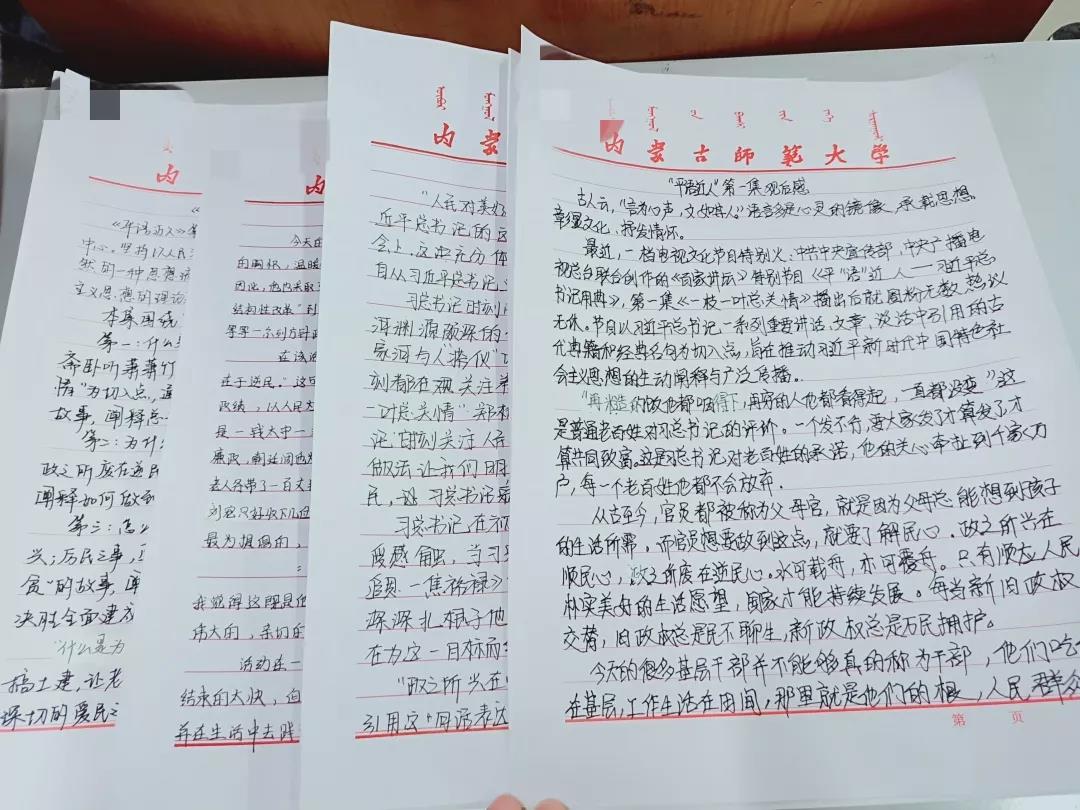 内蒙古師範大學
"平语近人"第一集观后感
古人云，"言为心声，文如其人。"语言多是心灵的镜像，承载思想，
彰显文化，抒发情怀。
最近，一档电视文化节目特别火：中共中央宣传部，中央广播电
视总台联合创作的《百家讲坛》特别节目《平"语"近人——习近平总
书记用典》，第一集《一枝一叶总关情》播出后就圈粉无数，热议
无休。节目以习近平总书记一系列重要讲话、文章，谈话中引用的古
代典籍和经典名句为切入点，旨在推动习近平新时代中国特色社
会主义思想的生动阐释与广泛传播。
"再粗糙的饭他都咽得下，再穷的人他都看得起，一直都没变"这
是普通老百姓对习总书记的评价。一个发不行，要大家发了才算发了才
算共同致富。这是习总书记对老百姓的承诺，他的关心牵扯到千家万
户，每一个老百姓他都不会放弃。
从古至今，官员都被称为父母官，就是因为父母总能想到孩子
的生活所需。而官员想要做到这点，就要了解民心。政之所兴在
顺民心，政之所废在逆民心。水可载舟，亦可覆舟。只有顺应人民
朴实美好的生活愿望，国家才能持续发展。每当新旧政权
交替，旧政权总是民不聊生，新政权总是万民拥护。
今天的很多基层干部并不能够真的称为干部，他们吃
在基层，工作生活在田间，那里就是他们的根，人民群众
第 页
内蒙
"人民对美好
近平总书记的这
会上，这也充分体
自从习近平总书记
习总书记时刻
洱渊源颇深的
家河与人"挨伙"
刻都在观关注
一叶总关情"郑板
记时刻关注人民
做法让我们明
民，说习总书记亲
习总书记在初
度感触，当习
追思——焦裕禄》
深深扎根于他
在为这一目标而
"政之所兴在
引用这句话表达
内
今天的
的胸怀，温暖
因此，也内采取
结构性改革"到
等等一系列方针政
在该治
在于逆民。"这
政绩，以人民为
是一钱太守一
廉政，朝廷闻也
老人各带了一百文
刘宠只好收下几位
最为拥挤的，
我觉得这既是他
伟大的，亲切的
活动在一
结束的大快，但
并在生活中去践
内
《平语近人》第
中心。坚持以人民
然的一种思想
主义思想的理论
本集围绕
第一：什么
斋卧听萧萧竹
情"为切入点，通
故事，阐释总
第二：为什
政之所废在逆民
阐释如何做到
第三：怎么
兴；厉民之事，
贪"的故事，阐
决胜全面建成
"什么是为
搞土建，让老
深切的爱民之